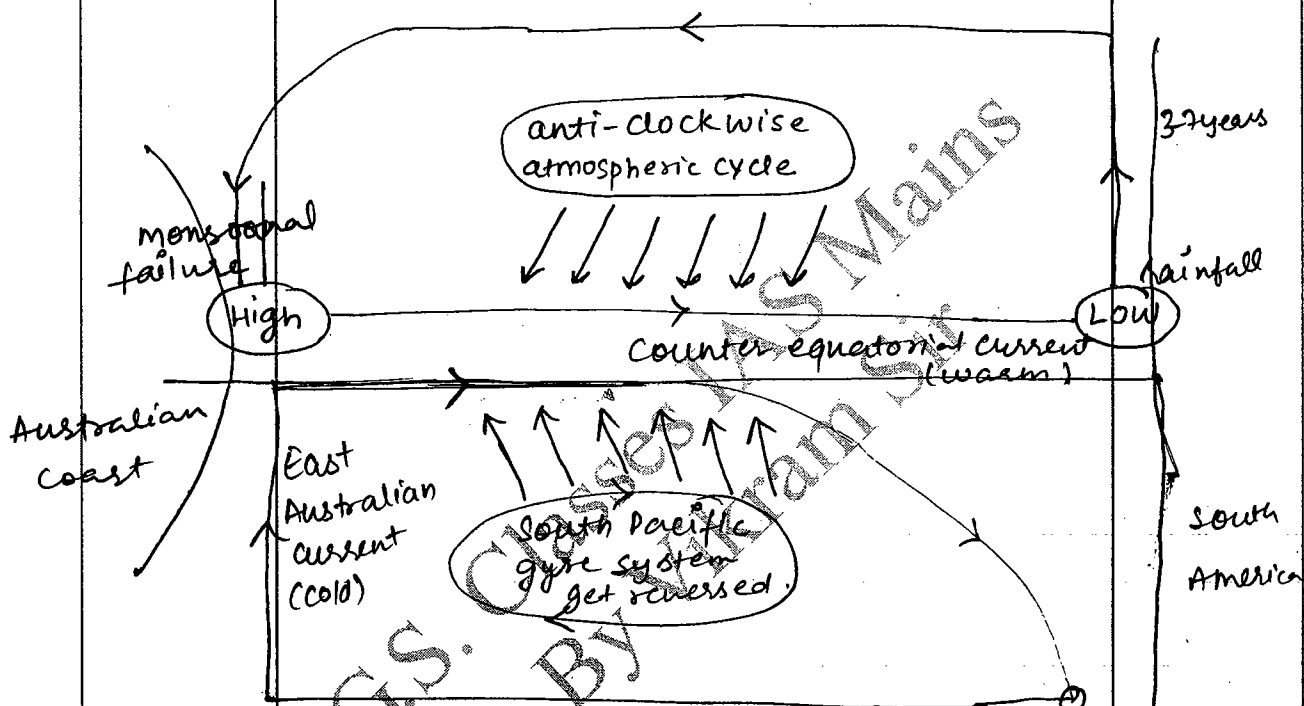 anti-clockwise
atmospheric cycle
3-7years
monsoonal
failure
rainfall
High
Low
Counter equatorial current
(warm)
Australian
coast
East
Australian
current
(cold)
South Pacific
gyre system
get reversed.
South
America
G.S. Classes IAS Mains
By Vikram Sir